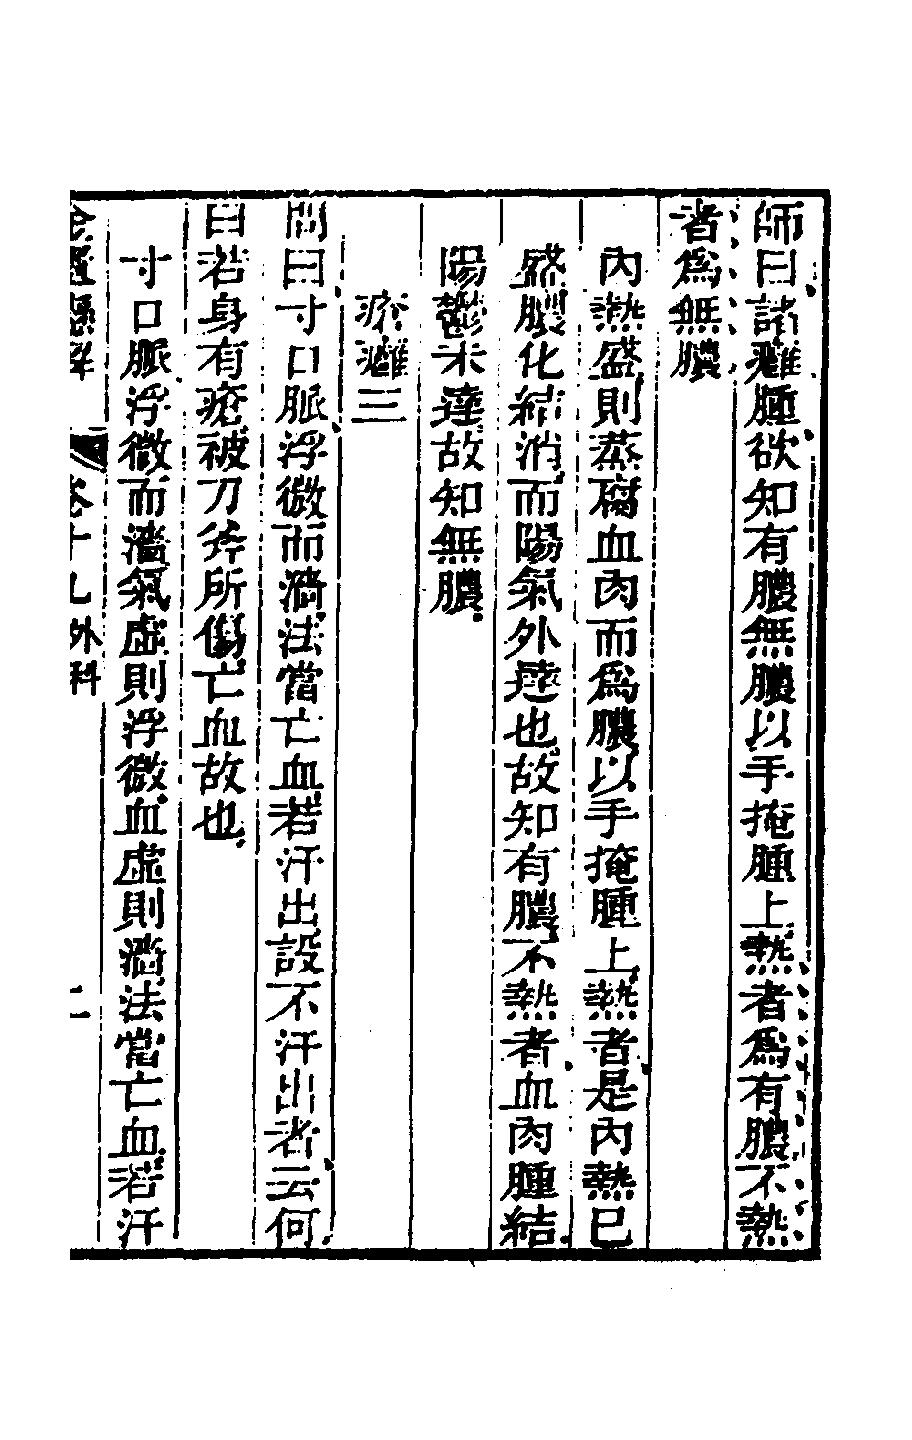 師曰諸癰腫欲知有膿無膿以手掩腫上熱者為有膿不熱
者為無膿
內熱盛則蒸腐血肉而為膿以手掩腫上熱者是內熱已
盛膿化結消而陽氣外達也故知有膿不熱者血肉腫結
陽鬱未達故知無膿
瘀癰三
問曰寸口脈浮微而濇法當亡血若汗出設不汗出者云何
曰若身有瘡被刀斧所傷亡血故也
寸口脈浮微而濇氣虛則浮微血虛則濇法當亡血若汗
金匱懸解 卷十九外科 二